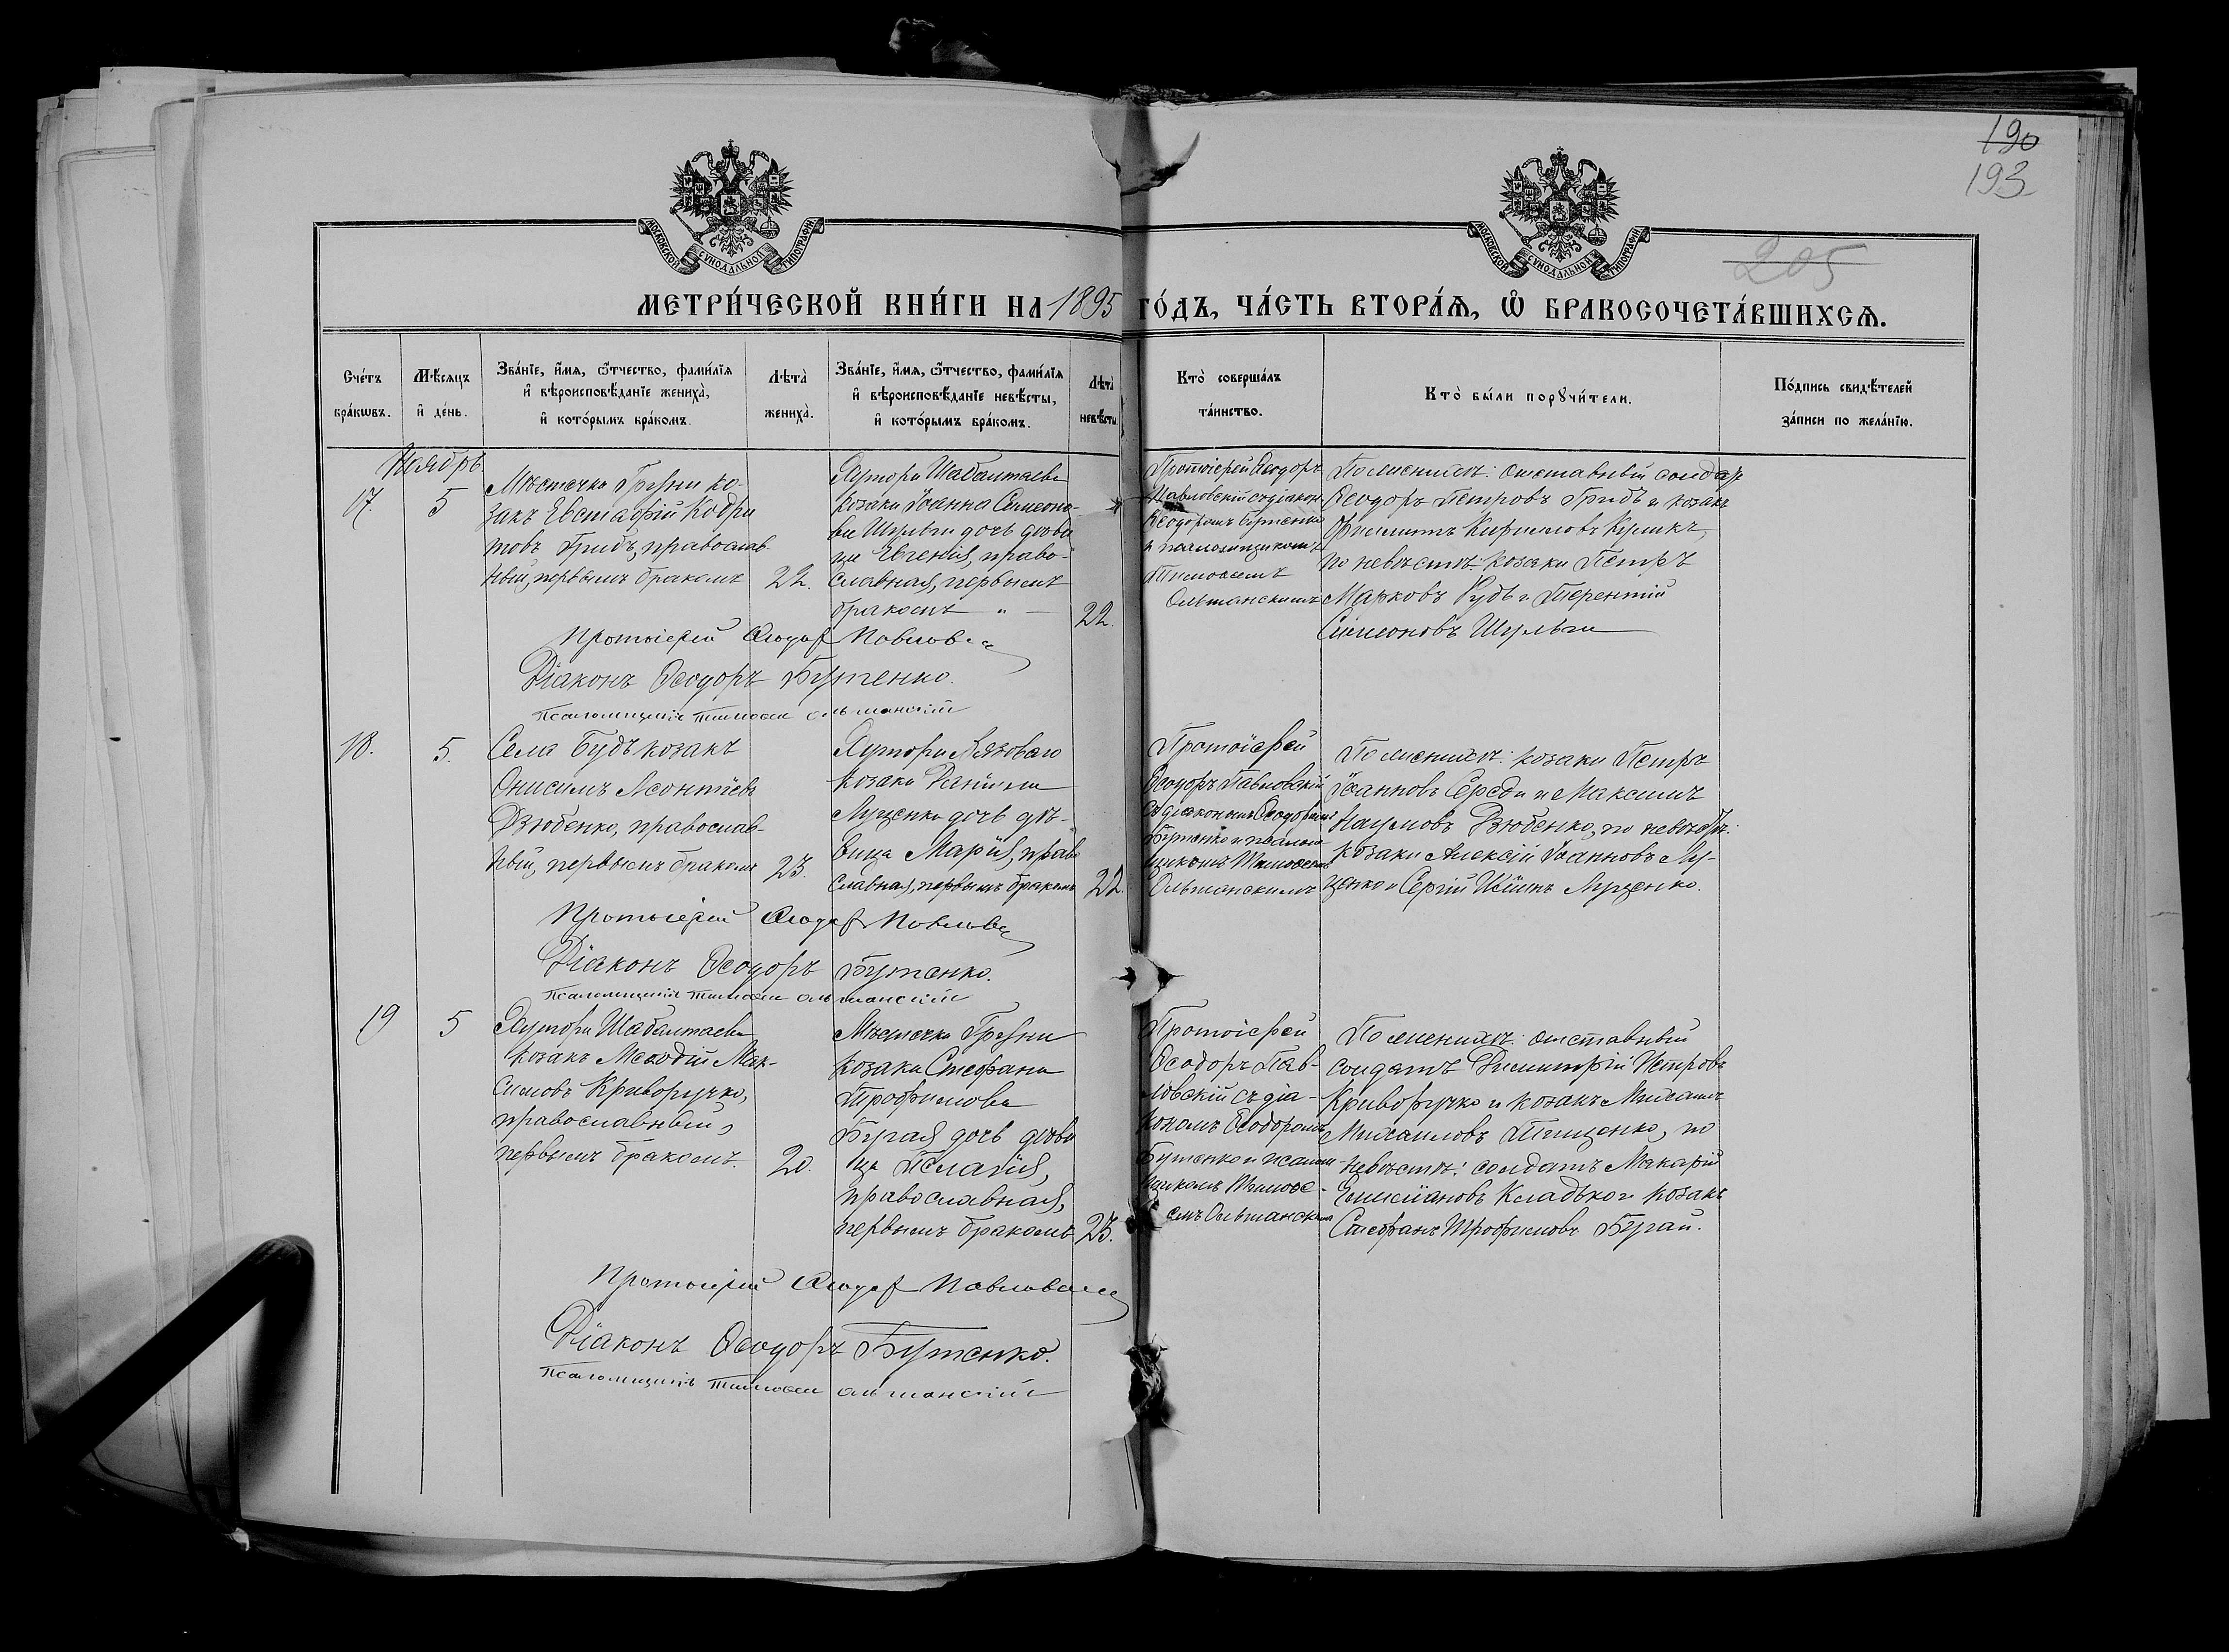 190
193
205
МОСКОВСКОЙ СѴНОДАЛЬНОЙ ТИПОГРАФІИ
МОСКОВСКОЙ СѴНОДАЛЬНОЙ ТИПОГРАФІИ
МЕТРИ́ЧЕСКОЙ КНИ́ГИ НА 1895 ГО́ДЪ, ЧА́СТЬ ВТОРА́Ѧ, Ѡ҆ БРАКОСОЧЕТА́ВШИХСѦ.
Сче́тъ
бра́кѡвъ.
Мѣ́сѧцъ
и҆ де́нь.
Зва́нїе, и҆́мѧ, ѻ҆́тчество, фами́лїѧ
и҆ вѣроисповѣ́данїе жениха̀,
и҆ кото́рымъ бра́комъ.
Лѣта̀
жениха̀.
Зва́нїе, и҆́мѧ, ѻ҆́тчество, фами́лїѧ
и҆ вѣроисповѣ́данїе невѣ́сты,
и҆ кото́рымъ бра́комъ.
Лѣта̀
невѣ́сты
Кто̀ соверша́лъ
та́инство.
Кто̀ бы́ли порꙋчи́тели.
По́дпись свидѣ́телей
за́писи по жела́нїю.
Ноябрь
17.
5
Мѣстечка Грузни ко-
закъ Евстафій Кодра
товъ Гридъ, православ-
ный, первымъ бракомъ
22.
Хутора Шабалтаева
козака Іоанна Симеоно-
ва Шульги дочь дѣви
ца Евгенія, право-
славная, первымъ
бракомъ
22.
Протоіерей Ѳеодоръ
Павловскій съ діакон.
Ѳеодоромъ Бутенко
и псаломщикомъ
Тимоѳеемъ
Ольшанскимъ
По женихѣ: отставный солдатъ
Ѳеодоръ Петровъ Гридъ и козакъ
Филиппъ Кириловъ Куликъ,
по невѣстѣ: козаки Петръ
Марковъ Рудь и Терентій
Симеоновъ Шульга
Протоіерей Ѳеодоръ Павловск
Діаконъ Ѳеодоръ Бутенко.
Псаломщикъ Тимоѳей Ольшанскій
18.
5.
Села Будъ козакъ
Онисимъ Леонтіевъ
Дзюбенко, православ-
ный, первымъ бракомъ
23.
Хутора Лязоваго
козака Даніила
Луценка дочь дѣ-
вица Марія, право
славная, первымъ бракомъ
22.
Протоіерей
Ѳеодоръ Павловскій
съ діакономъ Ѳеодоромъ
Бутенко и псалом-
щикомъ Тимоѳеемъ
Ольшанскимъ
По женихѣ: козаки Петръ
Іоанновъ Середа и Максимъ
Наумовъ Дзюбенко, по невѣстѣ:
козаки Алексій Іоанновъ Лу-
ценко и Сергій Луценко.
Протоіерей Ѳеодоръ Павловск
Діаконъ Ѳеодоръ Бутенко.
Псаломщикъ Тимоѳей Ольшанскій
19
5
Хутора Шабалтаева
козакъ Меѳодій Мак-
симовъ Криворучко,
православный,
первымъ бракомъ.
20.
Мѣстечка Грузни
козака Стефана
Трофимова
Бугая дочь дѣви
ца Пелагія,
православная,
первымъ бракомъ
23.
Протоіерей
Ѳеодоръ Пав-
ловскій съ діа-
кономъ Ѳеодоромъ
Бутенко и псалом-
щикомъ Тимоѳе-
емъ Ольшанскимъ
По женихѣ: отставный
солдатъ Димитрій Петровъ
Криворучко и козакъ Михаилъ
Михаиловъ Тищенко, по
невѣстѣ: солдатъ Макарій
Емиліановъ Кладько и козакъ
Стефанъ Трофимовъ Бугай.
Протоіерей Ѳеодоръ Павловскій
Діаконъ Ѳеодоръ Бутенко.
Псаломщикъ Тимоѳей Ольшанскій